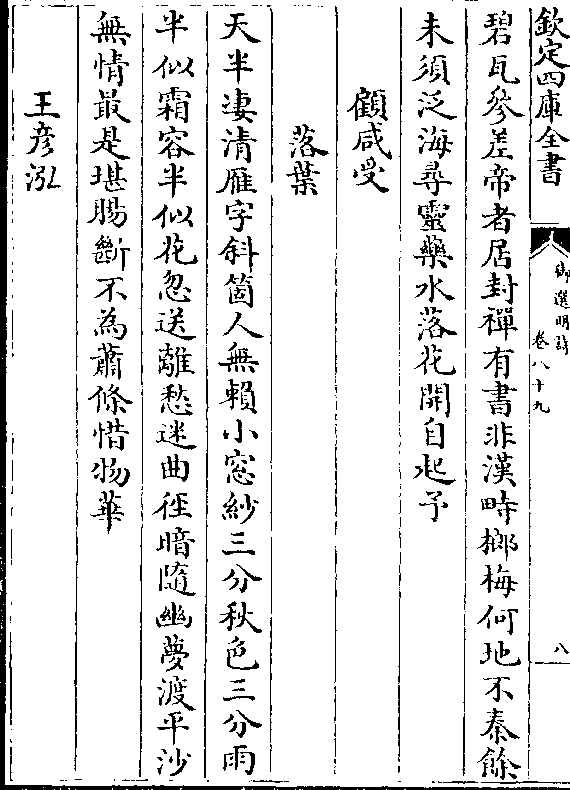 欽定四庫全書
御選明詩
卷八十九
八
碧瓦參差帝者居封禪有書非漢畤榔梅何地不秦餘
未須泛海尋靈藥水落花開自起予
顧咸受
落葉
天半淒清雁字斜箇人無賴小窓紗三分秋色三分雨
半似霜容半似花忽送離愁迷曲徑暗隨幽夢渡平沙
無情最是堪腸斷不為蕭條惜物華
王彦泓